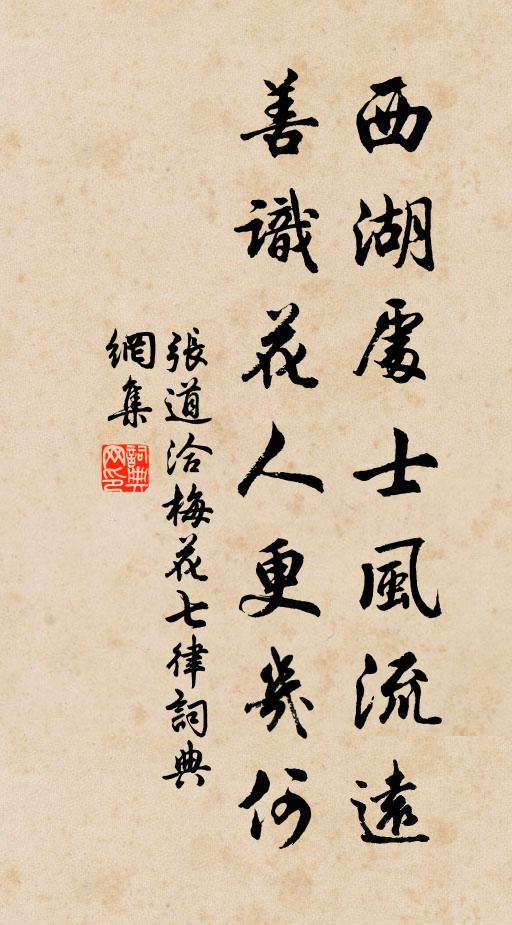 西湖處士風流遠
善識花人更幾何
張道洽梅花七律詞典
網集
詞典
网印